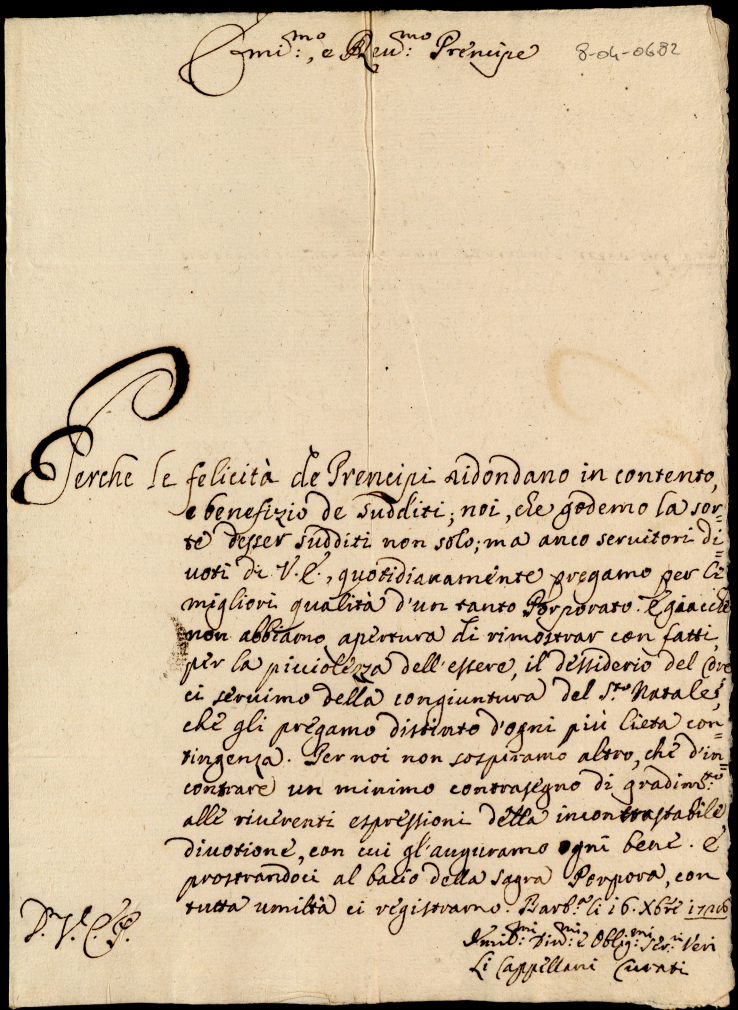 Emi.mo, e Reu.mo Prencipe
8-04-0682
Perche le felicità de Prencipi ridondano in contento,
e benefizio de sudditi; noi, che godemo la sor=
te d'esser sudditi non solo; ma anco seruitori di=
uoti di V.E., quotidianamente pregamo per le
migliori qualità d'un tanto Porporato. E giacche
non abbiamo apertura di rimostrar con fatti,
per la picciolezza dell'essere, il dessiderio del
ci seruimo della congiuntura del S.to Natale,
che gli pregamo distinto d'ogni più lieta con=
tingenza. Per noi non sospiramo altro, che d'in=
contrare un minimo contrasegno di gradim.to
alle riuerenti espressioni della incontrastabile
diuotione, con cui gl'auguramo ogni bene. E
prostrandoci al bacio della sagra Porpora, con
tutta umiltà ci registramo. Barb.a li 16. Xbre
D. V. E.
Umil.mi Diu.mi e Oblig.mi Ser.ri Veri
Li Cappellani Curati